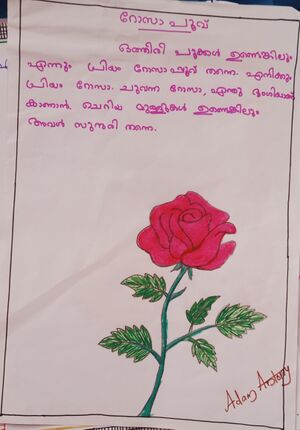 റോസാ പൂവ്
ഒത്തിരി പൂക്കൾ ഉണ്ടെങ്കിലും
എന്നും പ്രിയം റോസാ പൂവ് തന്നെ. എനിക്കും
പ്രിയം റോസാ. ചുവന്ന റോസാ, എന്തു ഭംഗിയാണ്
കാണാൻ. ചെറിയ മുള്ളുകൾ ഉണ്ടെങ്കിലും
അവൾ സുന്ദരി തന്നെ.
Adam Antony